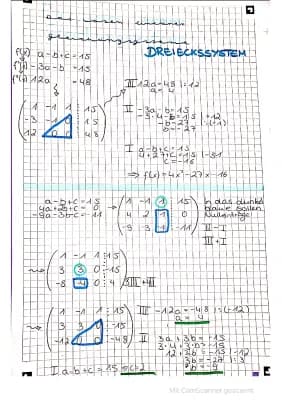 DREIECKSSYSTEM
f(x) a-b+c = 15
-3a-b = 15
12a = 48
III 12a = 48 |:12
a = 4
1 -1 1 : 15
-3 -1 : 15
12 0 0 : 48
II -3a-b = 15
-3·4-b = 15 |+12
-b = 27 |:(-1)
b = -27
I a-b+c = 15
4+27+c = 15 |-31
c = -16
⇒ f(x) = 4x² - 27x - 16
a-b+c = 15
4a+2b+c = 0
-9a-3b-c = -11
1 -1 1 : 15
4 2 1 : 0
-9 -3 1 : -11
In das dunkel
blaue sollen
Nulleinträge
II - I
III + I
1 -1 1 : 15
3 3 0 : -15
-8 4 0 : 4
1 -1 1 : 15
3 3 0 : -15
-12 0 0 : -48
III -12a = -48 |:(-12)
a = 4
II 3a + 3b = -15
3·4 + 3b = -15
12 + 3b = -15 |-12
3b = -27 |:3
b = -9
I a-b+c = 15
c = 2
Mit CamScanner gescannt